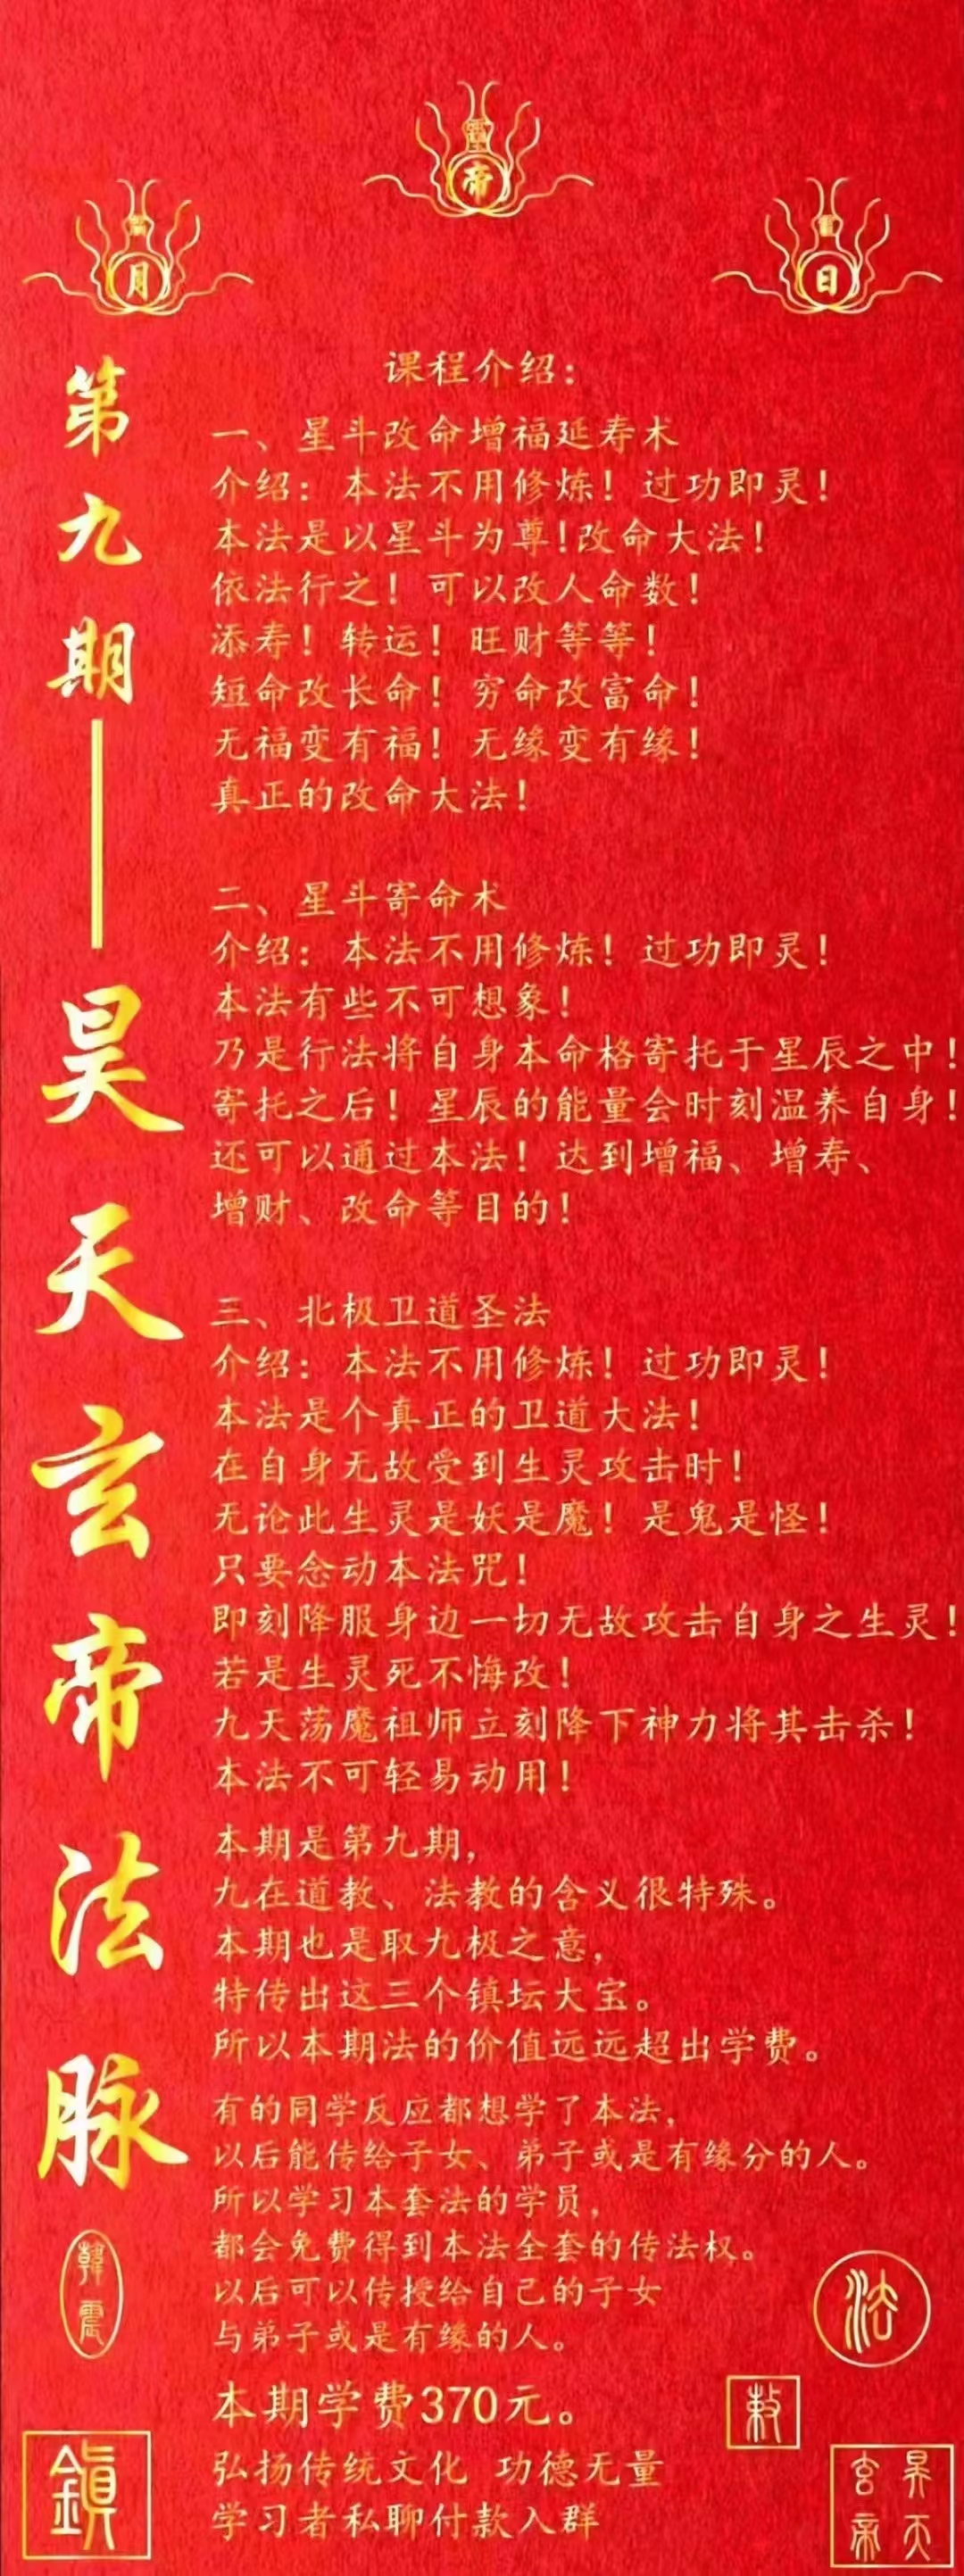 帝
月
日
第九期——昊天玄帝法脉
课程介绍：
一、星斗改命增福延寿术
介绍：本法不用修炼！过功即灵！
本法是以星斗为尊！改命大法！
依法行之！可以改人命数！
添寿！转运！旺财等等！
短命改长命！穷命改富命！
无福变有福！无缘变有缘！
真正的改命大法！
二、星斗寄命术
介绍：本法不用修炼！过功即灵！
本法有些不可想象！
乃是行法将自身本命格寄托于星辰之中！
寄托之后！星辰的能量会时刻温养自身！
还可以通过本法！达到增福、增寿、
增财、改命等目的！
三、北极卫道圣法
介绍：本法不用修炼！过功即灵！
本法是个真正的卫道大法！
在自身无故受到生灵攻击时！
无论此生灵是妖是魔！是鬼是怪！
只要念动本法咒！
即刻降服身边一切无故攻击自身之生灵！
若是生灵死不悔改！
九天荡魔祖师立刻降下神力将其击杀！
本法不可轻易动用！
本期是第九期，
九在道教、法教的含义很特殊。
本期也是取九极之意，
特传出这三个镇坛大宝。
所以本期法的价值远远超出学费。
有的同学反应都想学了本法，
以后能传给子女、弟子或是有缘分的人。
所以学习本套法的学员，
都会免费得到本法全套的传法权。
以后可以传授给自己的子女
与弟子或是有缘的人。
本期学费370元。
弘扬传统文化 功德无量
学习者私聊付款入群
韓震
鎮
法
敕
昊天玄帝